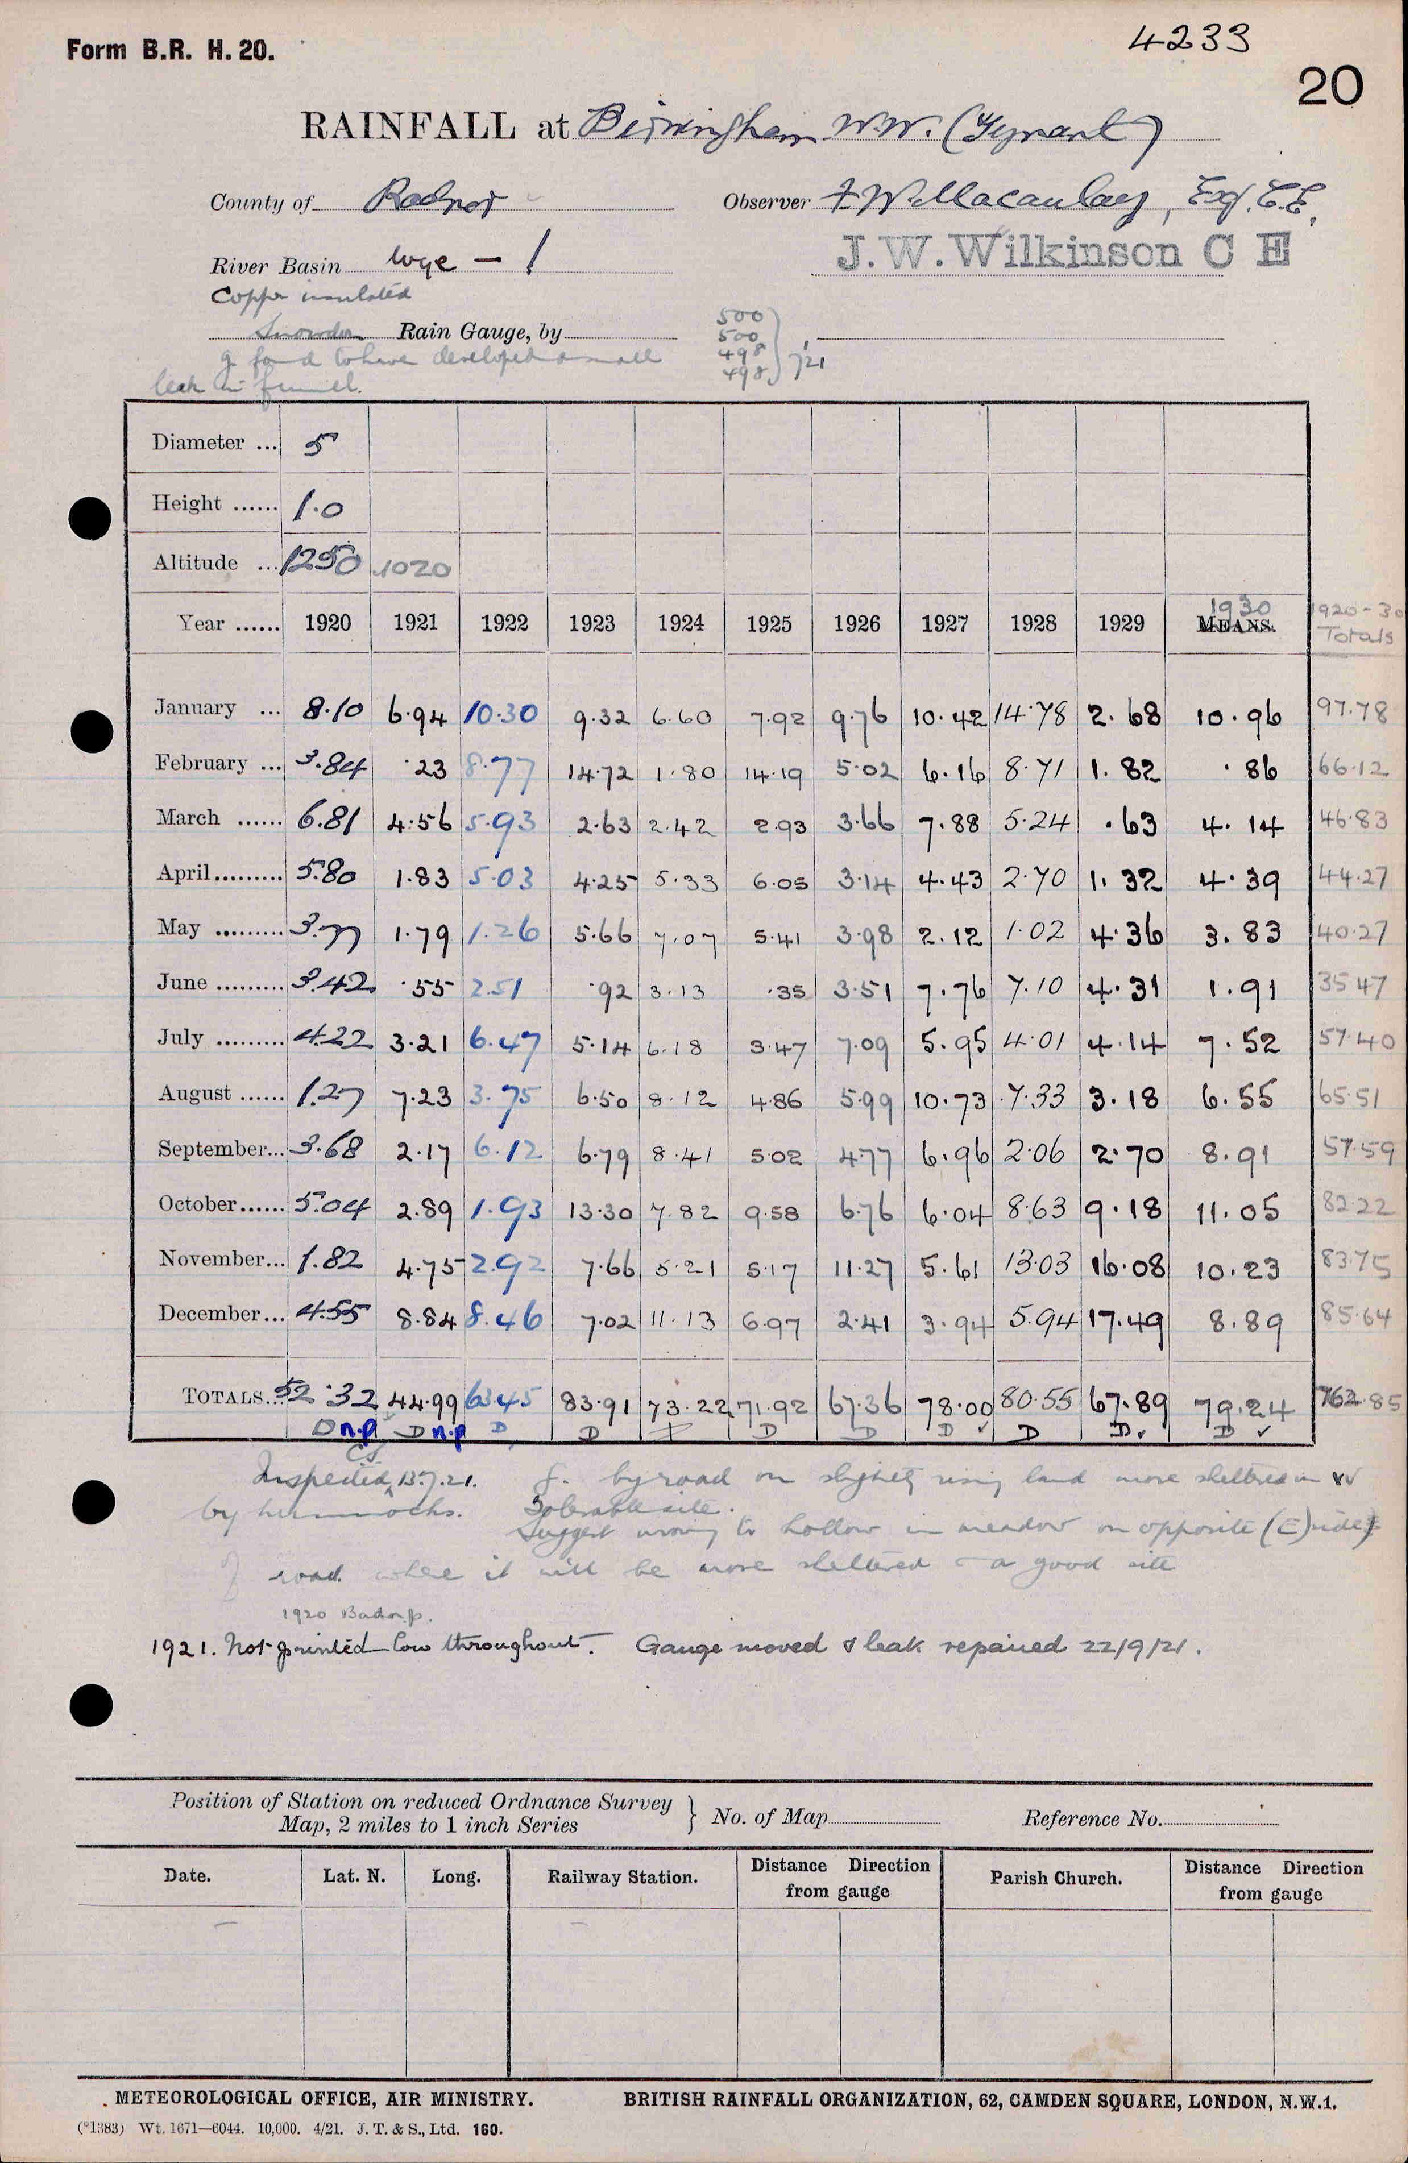 Form B.R. H. 20.
4233
20
RAINFALL at Birmingham W.W. (Tymant)
County of Radnor
Observer F W Macaulay, Esq. C.E.
River Basin Wye - 1
J. W. Wilkinson C E
Copper insulated
Snowdon Rain Gauge, by
500
500
498
498 } 7/21
g found to have developed a small
leak in funnel.
Diameter ... 5
Height ...... 1.0
Altitude ... 1250 1020
Year ...... 1920 1921 1922 1923 1924 1925 1926 1927 1928 1929 MEANS. 1930 1920-30 Totals
January ... 8.10 6.94 10.30 9.32 6.60 7.92 9.76 10.42 14.78 2.68 10.96 97.78
February ... 3.84 .23 8.77 14.72 1.80 14.19 5.02 6.16 8.71 1.82 .86 66.12
March ...... 6.81 4.56 5.93 2.63 2.42 2.93 3.66 7.88 5.24 .63 4.14 46.83
April ......... 5.80 1.83 5.03 4.25 5.33 6.05 3.14 4.43 2.70 1.32 4.39 44.27
May ......... 3.77 1.79 1.26 5.66 7.07 5.41 3.98 2.12 1.02 4.36 3.83 40.27
June ......... 3.42 .55 2.51 .92 3.13 .35 3.51 7.76 7.10 4.31 1.91 35.47
July ......... 4.22 3.21 6.47 5.14 6.18 3.47 7.09 5.95 4.01 4.14 7.52 57.40
August ...... 1.27 7.23 3.75 6.50 8.12 4.86 5.99 10.73 7.33 3.18 6.55 65.51
September... 3.68 2.17 6.12 6.79 8.41 5.02 4.77 6.96 2.06 2.70 8.91 57.59
October...... 5.04 2.89 1.93 13.30 7.82 9.58 6.76 6.04 8.63 9.18 11.05 82.22
November... 1.82 4.75 2.92 7.66 5.21 5.17 11.27 5.61 13.03 16.08 10.23 83.75
December... 4.55 8.84 8.46 7.02 11.13 6.97 2.41 3.94 5.94 17.49 8.89 85.64
TOTALS... 52.32 44.99 63.45 83.91 73.22 71.92 67.36 78.00 80.55 67.89 79.24 762.85
D n.p D n.p D D D D D D D D
Inspected 13.7.21. g. by road on slightly rising land more sheltered in W
by hummocks. Tolerable site.
Suggest moving to hollow in meadow on opposite (E) side
of road where it will be more sheltered a good site
1920 Bad n.p.
1921. Not printed low throughout. Gauge moved & leak repaired 22/9/21.
Position of Station on reduced Ordnance Survey
Map, 2 miles to 1 inch Series } No. of Map Reference No.
Date. Lat. N. Long. Railway Station. Distance Direction from gauge Parish Church. Distance Direction from gauge
METEOROLOGICAL OFFICE, AIR MINISTRY. BRITISH RAINFALL ORGANIZATION, 62, CAMDEN SQUARE, LONDON, N.W.1.
(*1383) Wt. 1671—6044. 10,000. 4/21. J. T. & S., Ltd. 160.